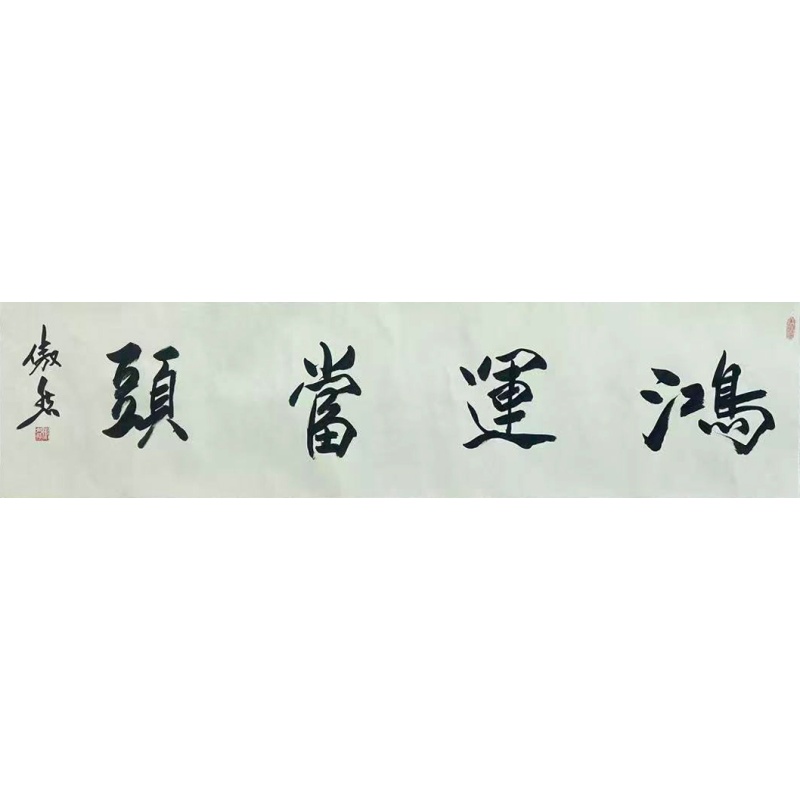 鴻運當頭
傲